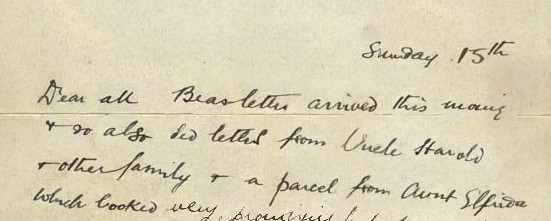 Sunday 15th
Dear all Beas letter arrived this morning
+ so also did letters from Uncle Harold
+ other family + a parcel from Aunt Elfrida
which looked very promising